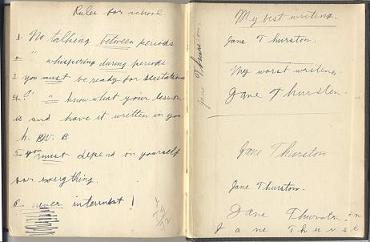 Rules for school
1. No talking between periods
2. " whispering during periods
3 you must be ready for recitations
4 " know what your lesson
is and have it written in your
h. W. B
5 you must depend on yourself
for everything
6. never interrupt!
My best writing.
Jane Thurston.
My worst writing.
Jane Thurston.
Jane Thurston
Jane Thurston
Jane Thurston.
Jane Thurston
Jane Thurst